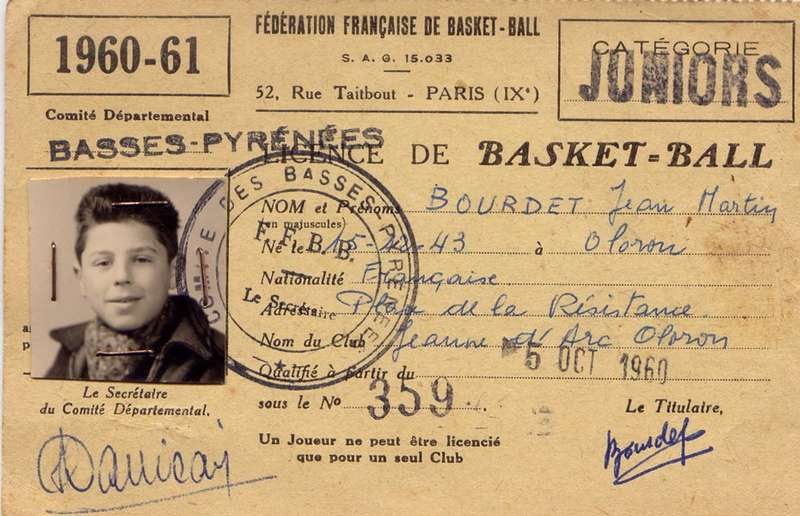 1960-61
FÉDÉRATION FRANÇAISE DE BASKET-BALL
S. A. G. 15.033
52, Rue Taitbout - PARIS (IXᵉ)
CATÉGORIE
JUNIORS
Comité Départemental
BASSES-PYRÉNÉES
LICENCE DE BASKET-BALL
NOM et Prénoms BOURDET Jean Martin
(en majuscules)
Né le 15- -43 à Oloron
Nationalité Française
Adresse Place de la Résistance
Nom du Club Jeanne d'Arc Oloron
Qualifié à partir du 5 OCT 1960
sous le Nº 359
DES BASSES PYRÉNÉES
F. F. B. B.
Le Secrétaire
Le Secrétaire
du Comité Départemental,
Un Joueur ne peut être licencié
que pour un seul Club
Le Titulaire,
Bourdet